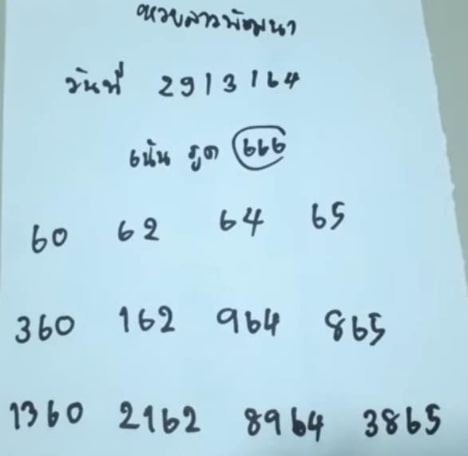 หวยลาวพัฒนา
วันที่ 29/3/64
เน้น รูด 666
60 62 64 65
360 162 964 865
1360 2162 8964 3865